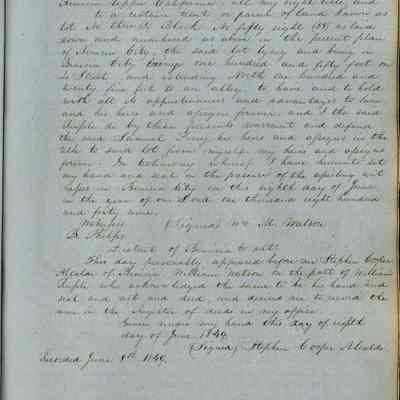 Benicia Upper California: all my right title and
to a certain tract or parcel of land known as
lot No three of Block No fifty eight (58) as laid
down and numbered as above in the present plan
of Benicia City, the said lot lying and being in
Benicia City one hundred and fifty feet on
Street and extending North one hundred and
twenty five feet to an alley to have and to hold
with all its appurtenances and advantages to him
and his heirs and assigns forever and I the said
do by these presents warrant and defend
the said Samuel his heirs and assigns in the
title to said lot from myself my heirs and assigns
forever. In testimony whereof I have hereunto set
my hand and seal in the presence of the
in Benicia City on this eighth day of June
in the year of our Lord one thousand eight hundred
and forty nine.
Witness (Signed) Wm M. Watson
Phelps
District of Benicia to wit:
This day personally appeared before me Stephen Cooper
Alcalde of Benicia William Watson on the part of William
who acknowledged the same to be his hand and
seal and act and deed, and desired me to record the
same in the Register of deeds in my office.
Given under my hand this day of eighth
day of June 1849.
(Signed) Stephen Cooper Alcalde
Recorded June 8th 1849.